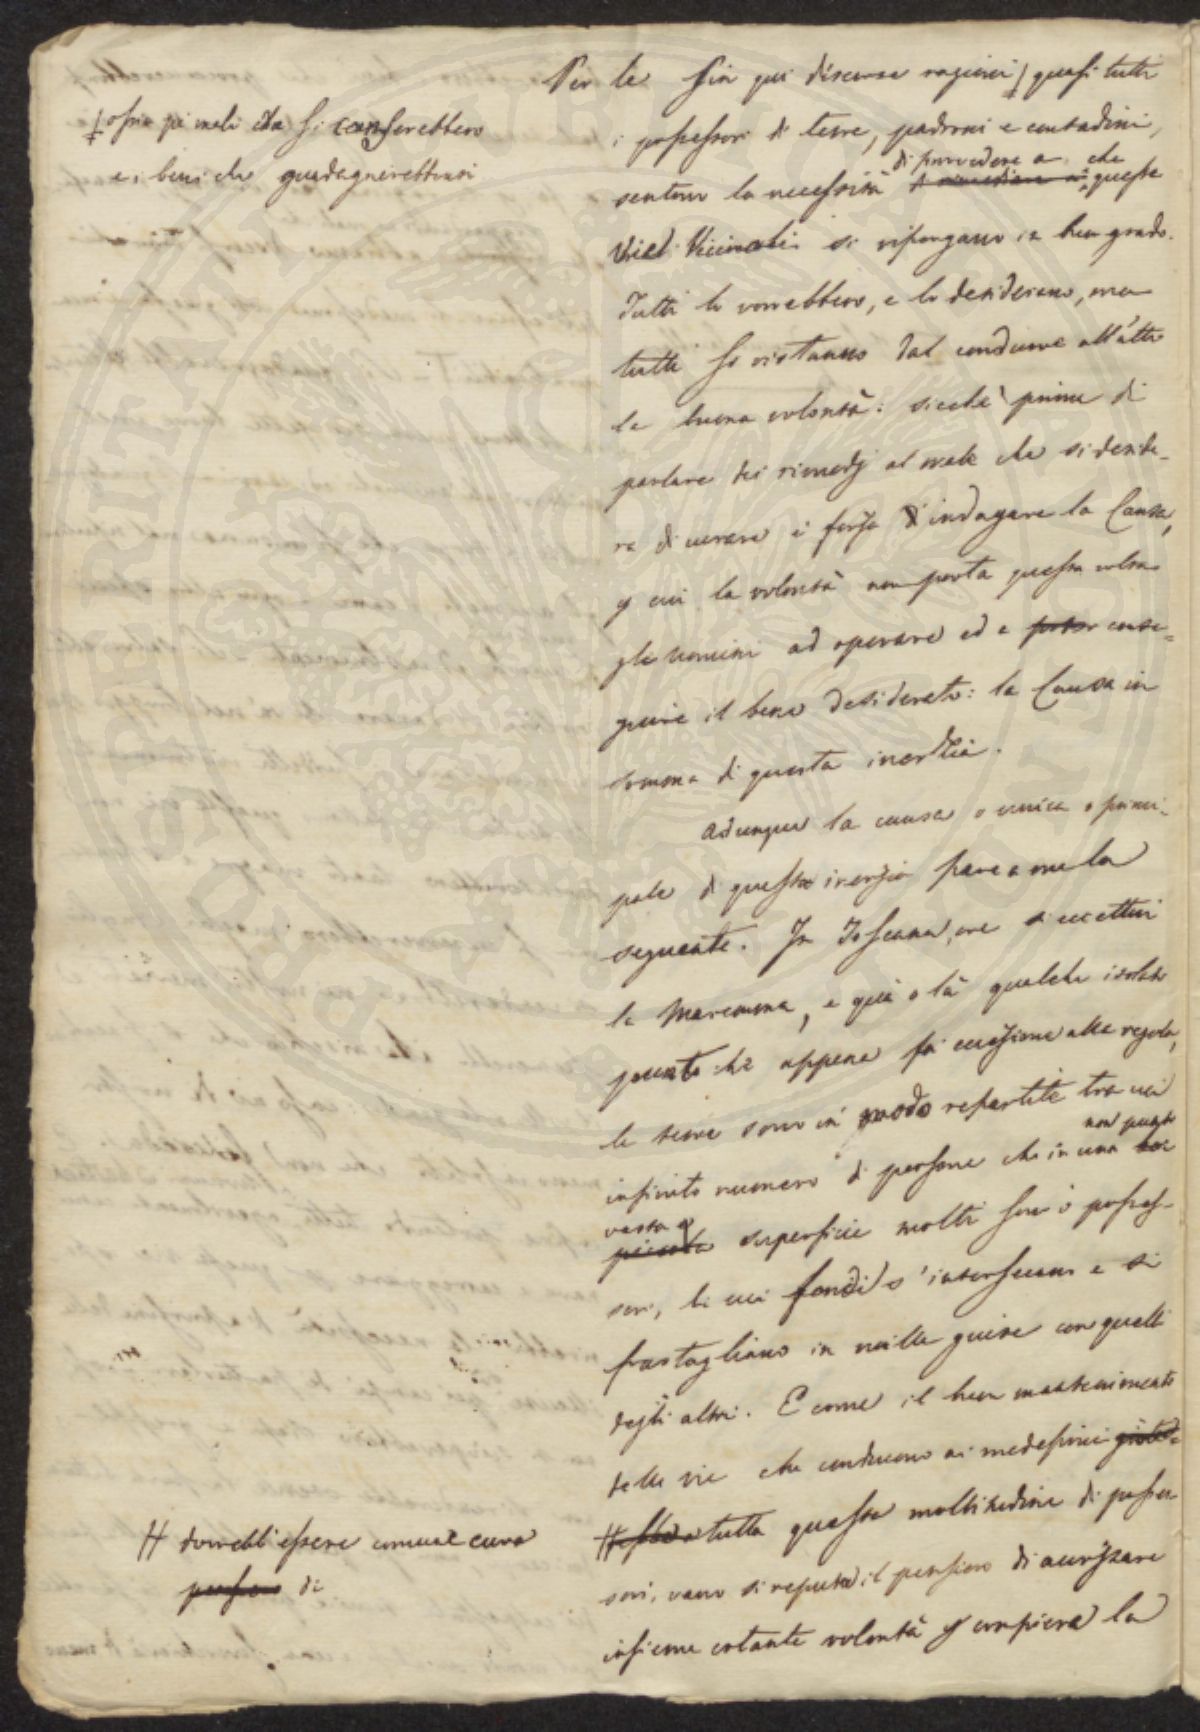 Per le fin qui discorse ragioni ƒ quasi tutti
ƒ ossia pei mali che si canserebbero
e i beni che guadagnerebbonsi
i possessori di terre, padroni e contadini,
di provvedere a che
sentono la necessità di rimediare a queste
Vie Vicinali si ripongano in buon grado.
Tutti lo vorrebbero, e lo desiderano, ma
tutti si ristanno dal condurre all'atto
la buona volontà: sicchè prima di
parlare dei rimedj al male che si deside-
ra di curare è forza d'indagare la Causa,
p cui la volontà non porta questa volta
gli uomini ad operare ed a conse-
guire il bene desiderato: la Causa in
somma di questa inerzia.
Adunque la causa o unica o princi-
pale di questa inerzia pare a me la
seguente. In Toscana, ove si eccettui
la Maremma, e quà o là qualche isolato
punto che appena fà eccezione alla regola,
le terre sono in modo repartite tra un
infinito numero di persone che in una
non punto
vasta
piccola superficie molti sono i posses-
sori, li cui fondi s'intersecano e si
frastagliano in mille guise con quelli
degli altri. E come il buon mantenimento
delle vie che conducono ai medesimi
H dovrebb'essere comune cura
pensiero di
H tutta questa moltitudine di posses
sori, vano si reputa il pensiero di
insieme cotante volontà p compiere la